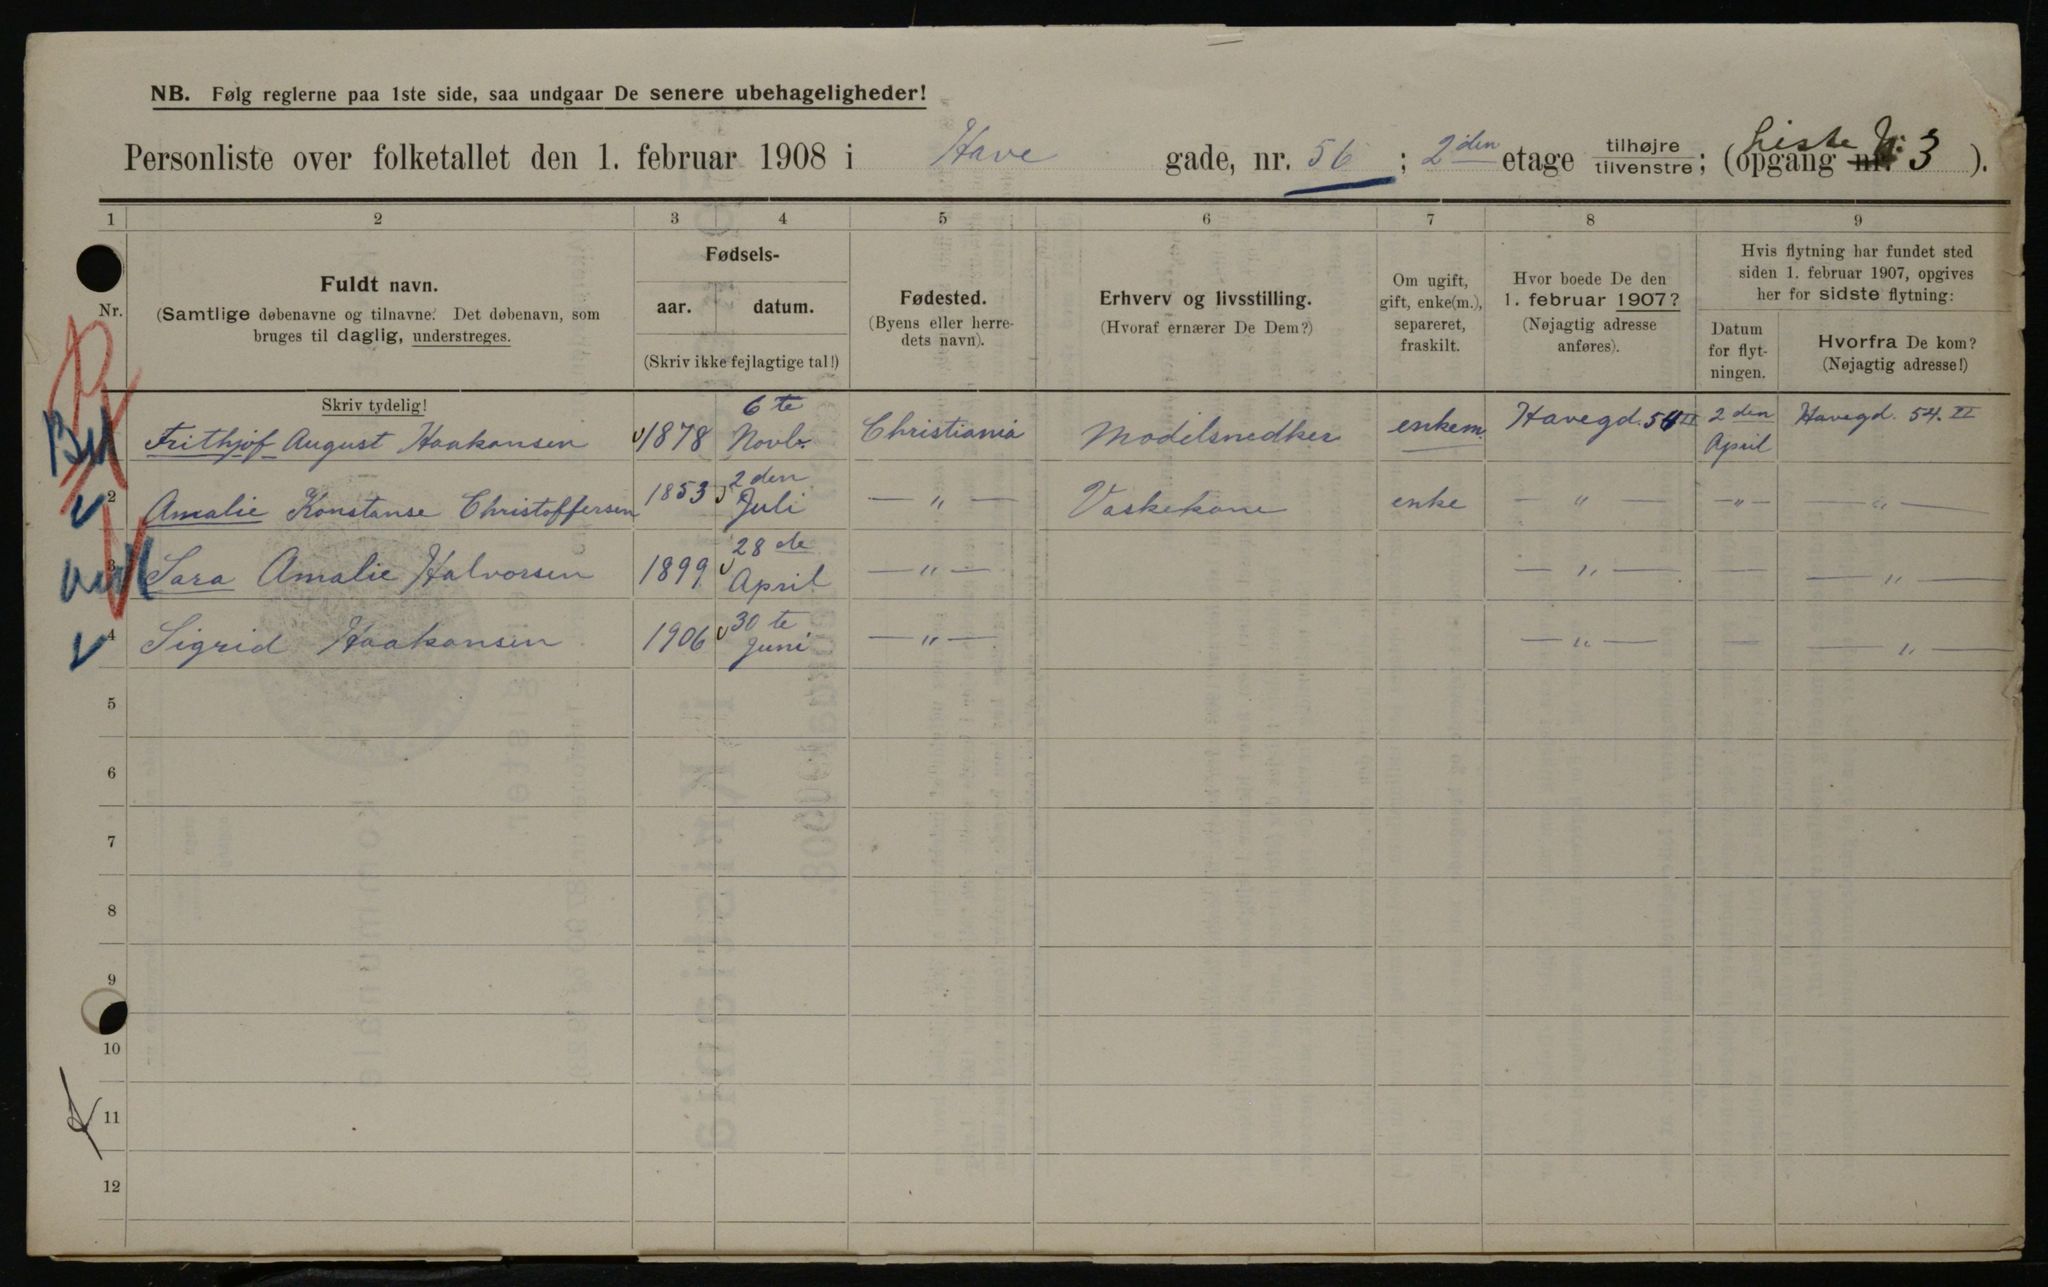 NB. Følg reglerne paa 1ste side, saa undgaar De senere ubehageligheder!
Personliste over folketallet den 1. februar 1908 i Have gade, nr. 56; 2den etage tilhøjre tilvenstre; (opgang nr. Liste N: 3).
1 2 3 4 5 6 7 8 9
Nr.
Fuldt navn.
(Samtlige døbenavne og tilnavne. Det døbenavn, som
bruges til daglig, understreges.
Skriv tydelig!
Fødsels-
aar. datum.
(Skriv ikke fejlagtige tal!)
Fødested.
(Byens eller herre-
dets navn).
Erhverv og livsstilling.
(Hvoraf ernærer De Dem?)
Om ugift,
gift, enke(m.),
separeret,
fraskilt.
Hvor boede De den
1. februar 1907?
(Nøjagtig adresse
anføres).
Hvis flytning har fundet sted
siden 1. februar 1907, opgives
her for sidste flytning:
Datum
for flyt-
ningen.
Hvorfra De kom?
(Nøjagtig adresse!)
Frithjof August Haakonsen 1878 6te Novb. Christiania Modelsnedker enkem. Havegd. 54 II 2den April Havegd. 54. II
2 Amalie Konstanse Christoffersen 1853 2den Juli — " — Vaskekone enke — " — — " — — " —
3 Sara Amalie Halvorsen 1899 28de April — " — — " — — — " —
4 Sigrid Haakonsen 1906 30te Juni — " — — " — — — " —
5
6
7
8
9
10
11
12